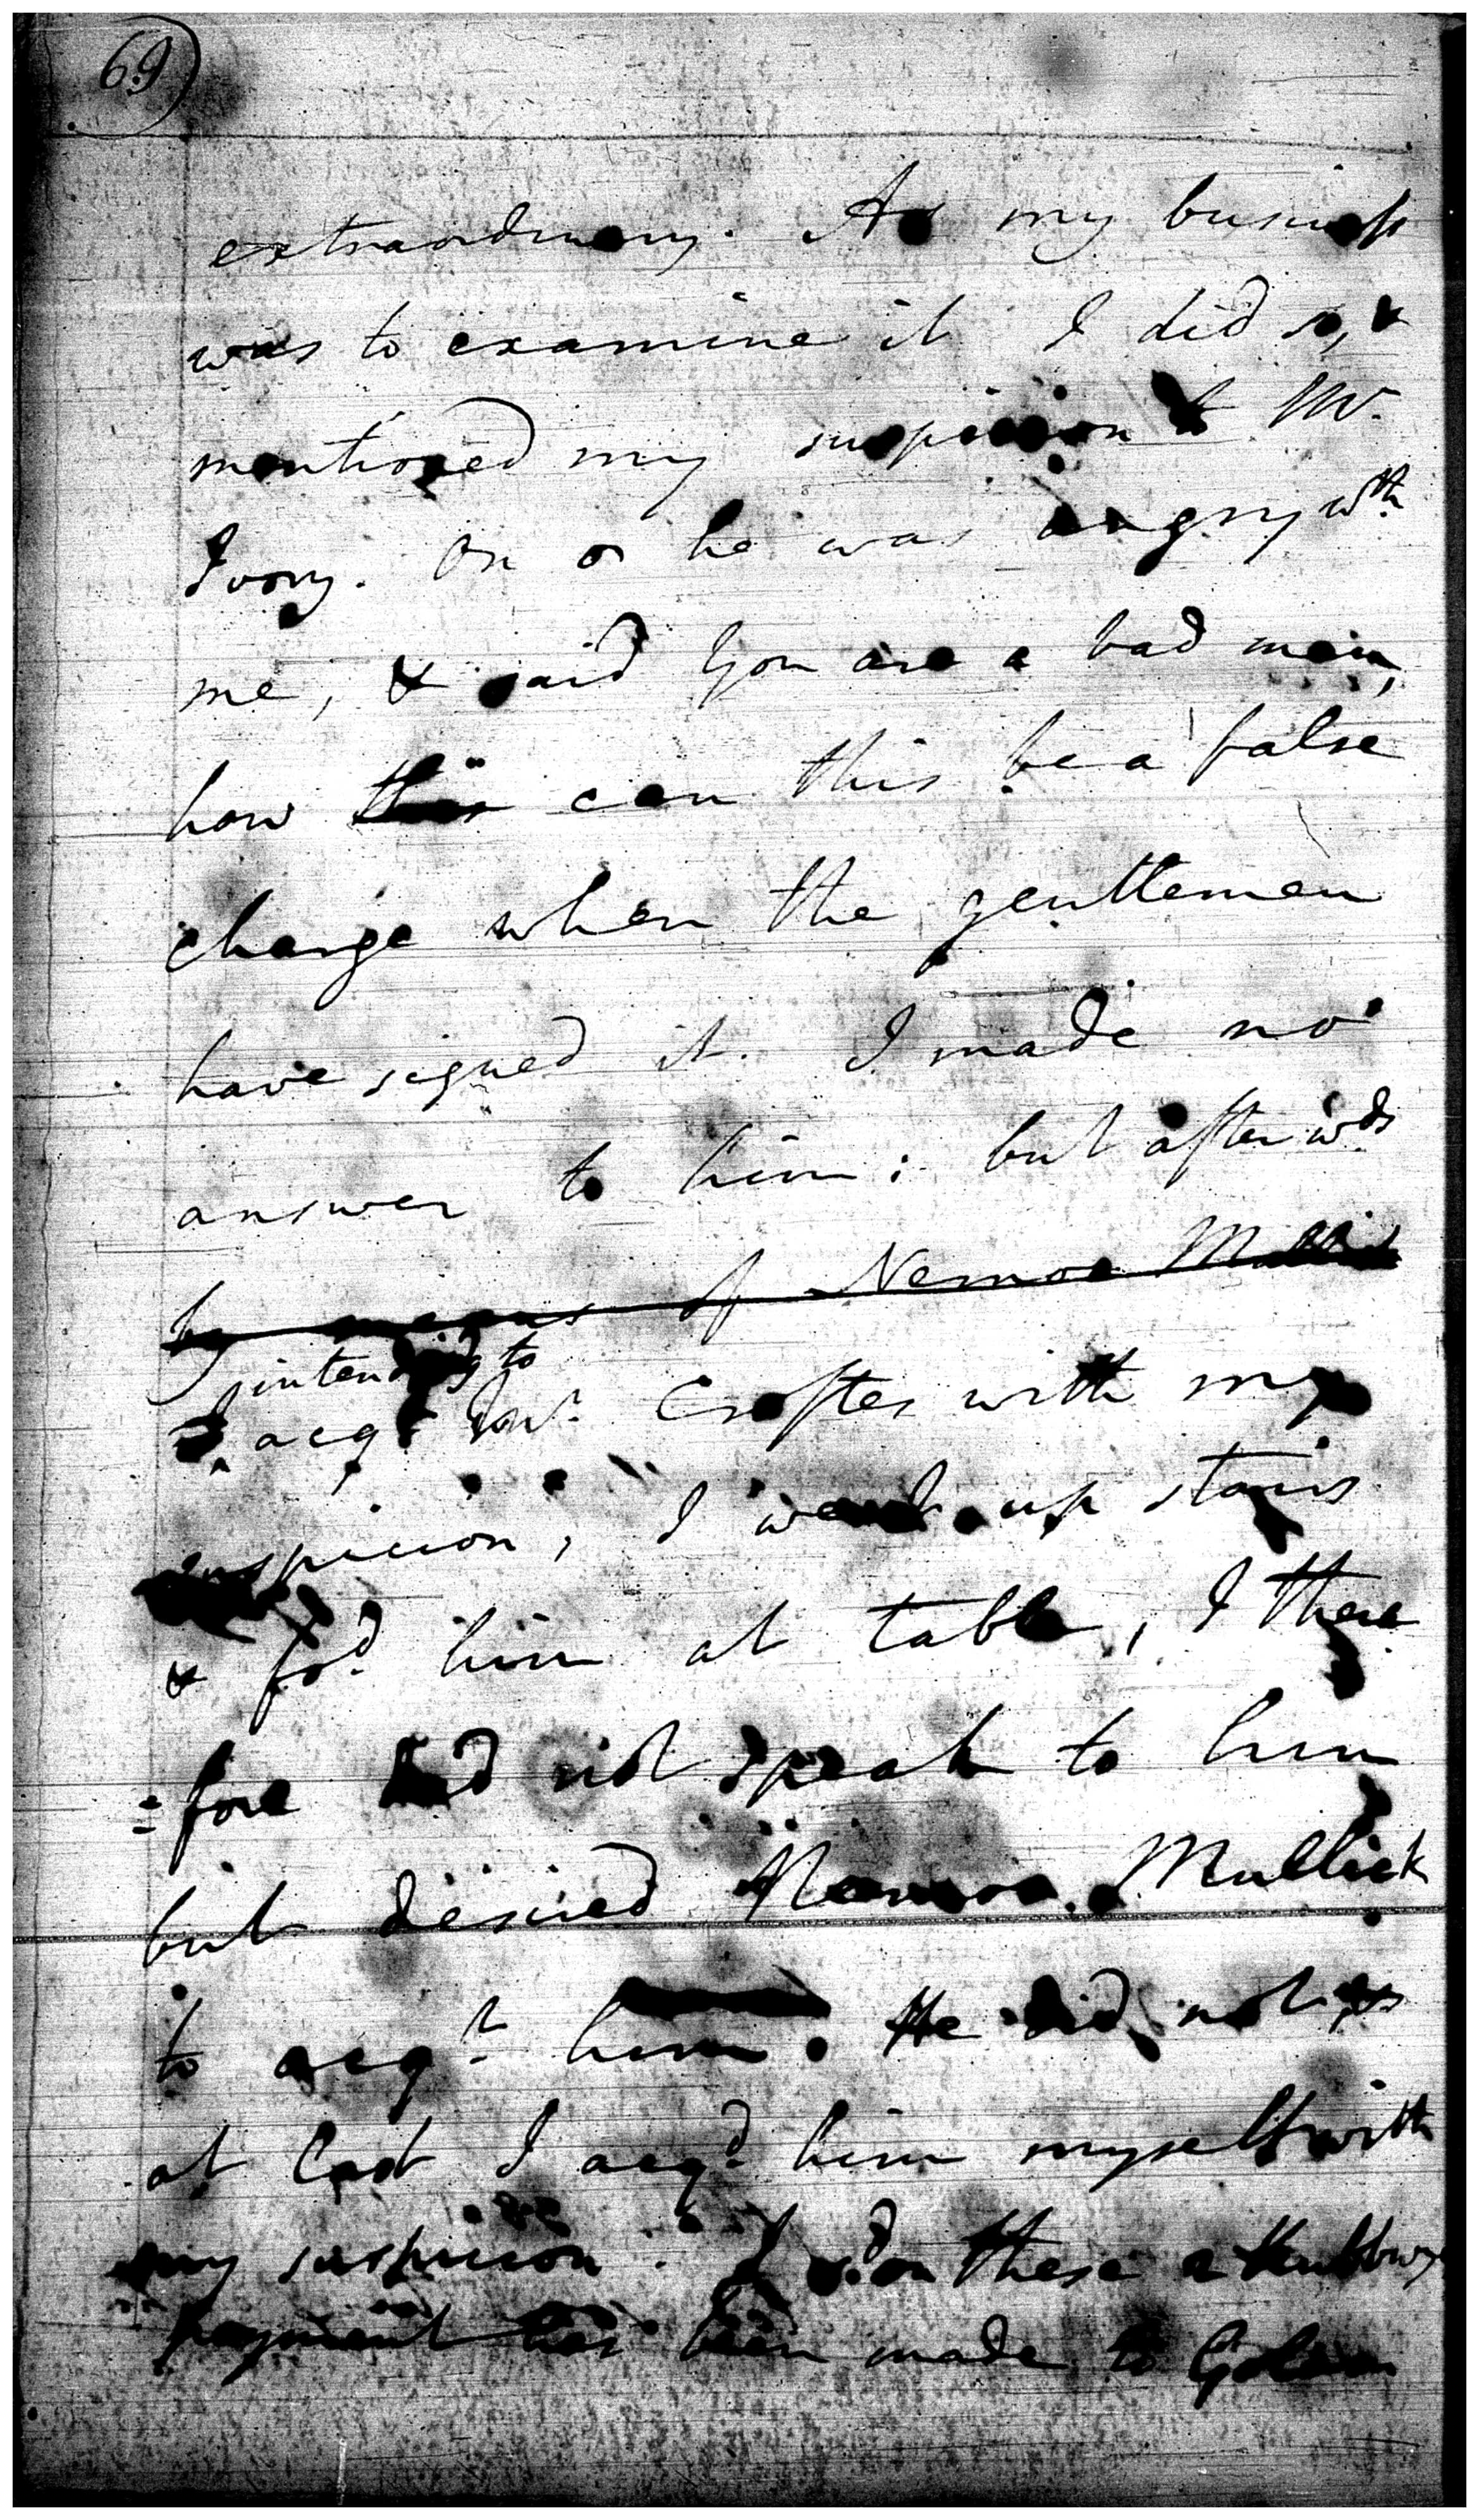 69
extraordinary. As my business
was to examine it I did so, &
mentioned my suspicion to Mr.
Ivory. On  he was angry wth
me, & said You are a bad man,
how this can this be a false
charge when the gentlemen
have signed it. I made no
answer to him; but afterwds
by means of Nemoo Mullick
intending to
acqt Mr. Croftes with my
suspicion, I went up stairs
& fod him at table, I there
=fore did not speak to him
but desired Nemoo Mullick
to acqt him. He did not
at last I acqd him myself with
my suspicion. I sd on these
payment has been made to